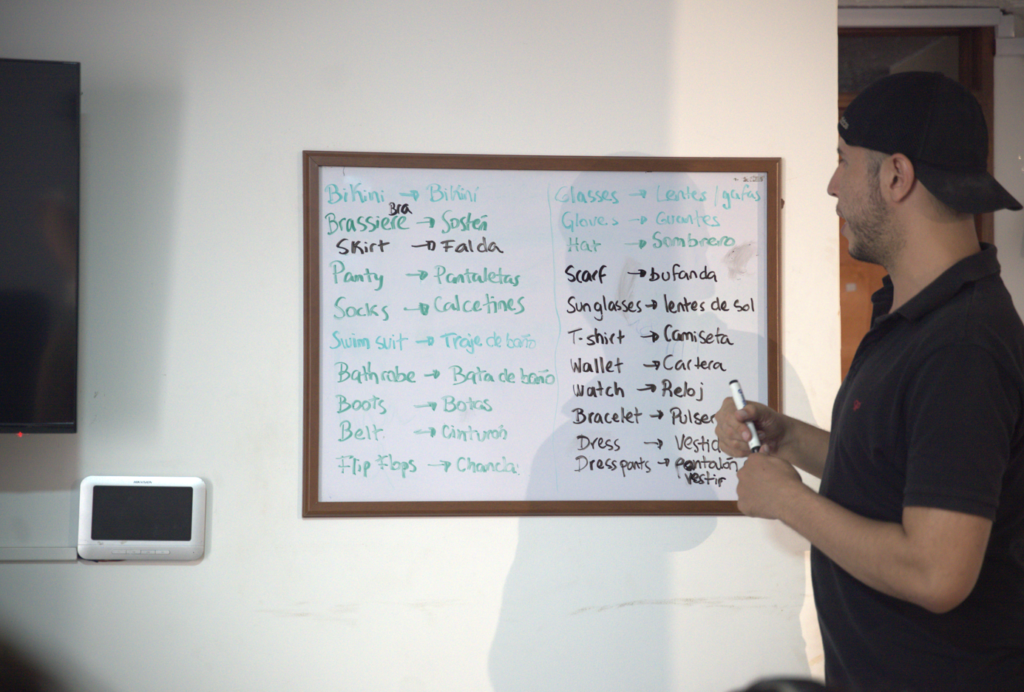 Bikini → Bikini
Bra
Brassiere → Sostén
Skirt → Falda
Panty → Pantaletas
Socks → Calcetines
Swim suit → Traje de baño
Bathrobe → Bata de baño
Boots → Botas
Belt → Cinturón
Flip Flops → Chancla
Glasses → Lentes / gafas
Gloves → Guantes
Hat → Sombrero
Scarf → bufanda
Sunglasses → lentes de sol
T-shirt → Camiseta
Wallet → Cartera
Watch → Reloj
Bracelet → Pulser
Dress → Vestid
Dress pants → pantalón
vestir